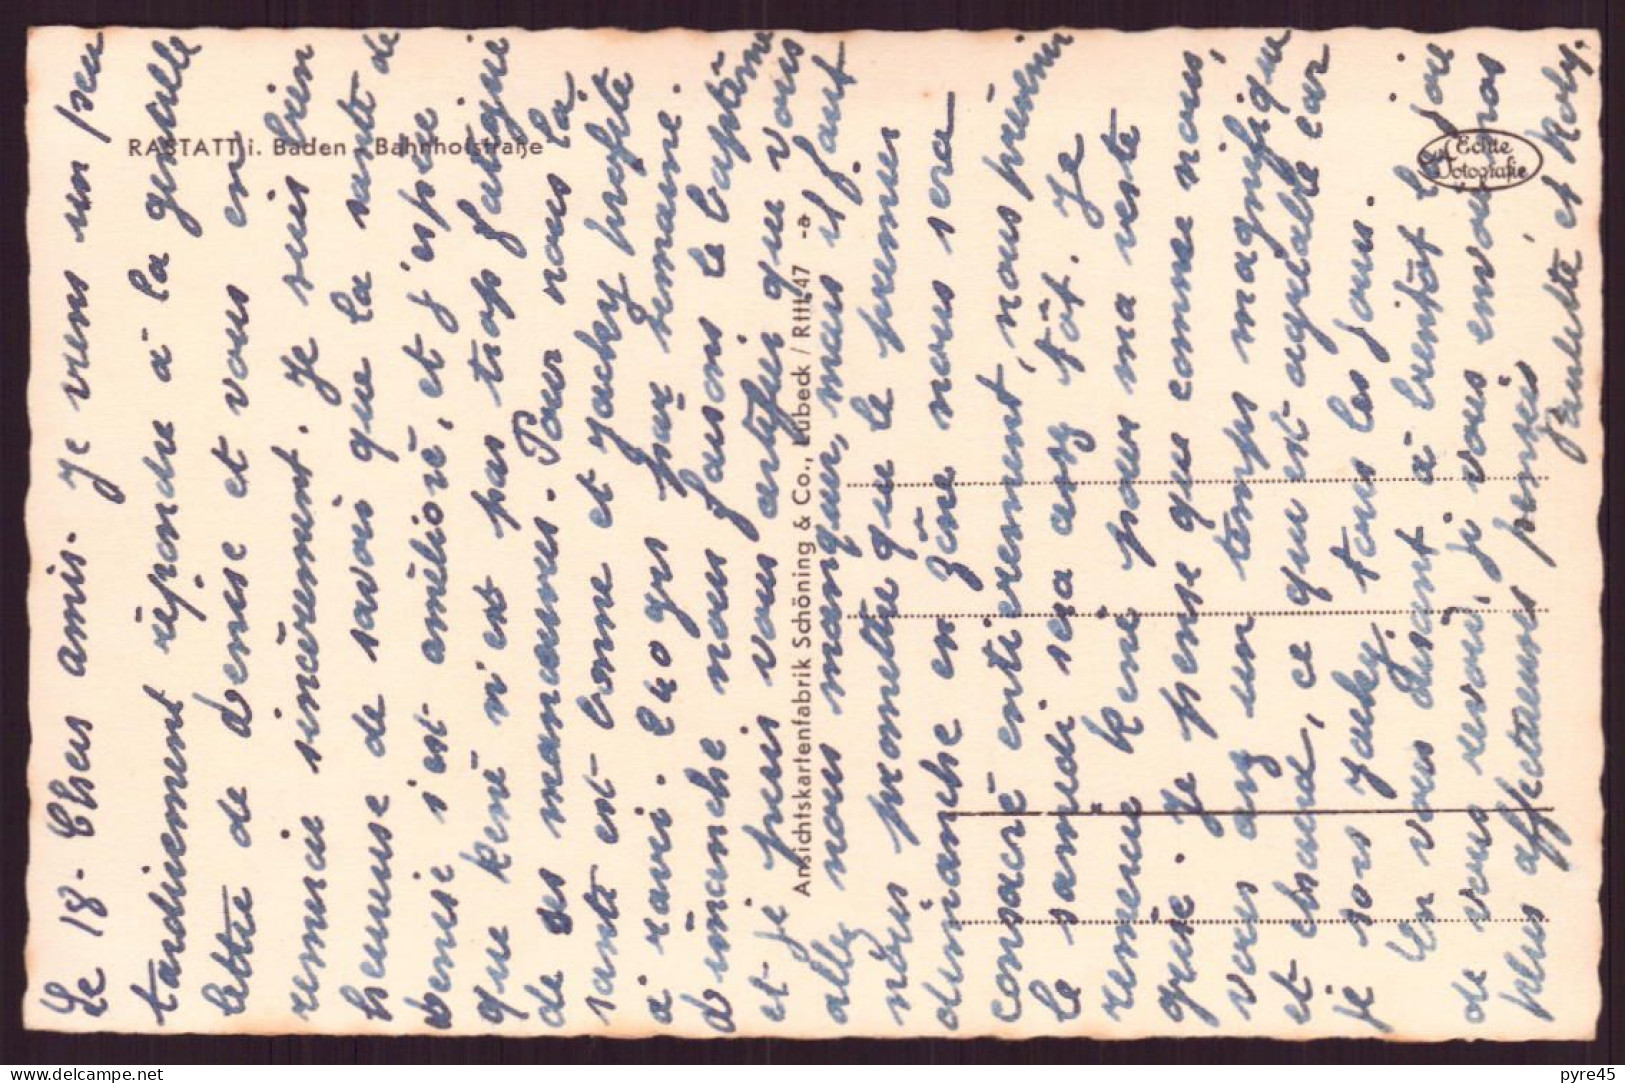 Le 18- Chers amis. Je viens un peu
tardivement répondre à la gentille
lettre de Denise et vous en
remercie sincèrement. Je suis bien
heureuse de savoir que la santé de
Denise s'est amélioré, et j'espère
que René n'est pas trop fatigué
de ses manœuvres. Pour nous la
santé est bonne et Jacky profite
à ravi. 240 grs par semaine.
Dimanche nous faisons le baptême
et je puis vous certifier que vous
allez nous manquer, mais il faut
nous promettre que le premier
dimanche en zône nous sera
consacré entièrement, nous prévenir
le samedi sera assez tôt. Je
remercie René pour ma veste
grise. Je pense que comme nous,
vous avez un temps magnifique
et chaud, ce qui est agréable car
je sors Jacky tous les jours.
En vous disant à bientôt la joie
de vous revoir, je vous envoie nos
plus affectueuses pensées
Paulette et Roby.
RASTATT i. Baden - Bahnhofstraße
Ansichtskartenfabrik Schöning & Co., Lübeck / Rtt 47 -a
Echte
Fotografie
delcampe.net
pyre45